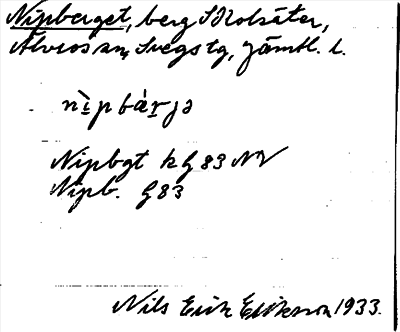 Nipberget, berg S Kolsäter,
Älvros sn, Svegs tg, Jämtl. l.
nìpbàrjə
Nipbgt k G 83 NV
Nipb. G 83
Nils Erik Eriksson 1933.